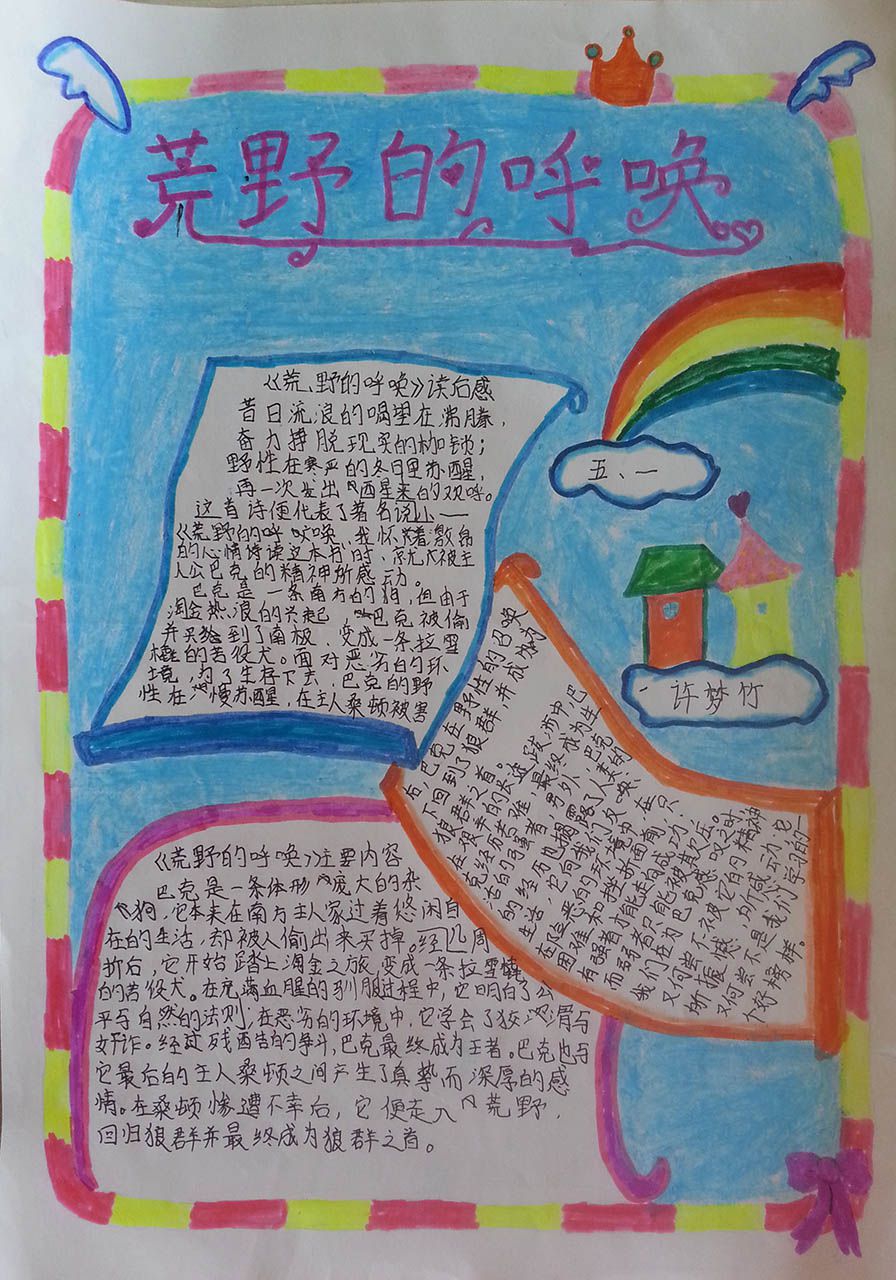 荒野的呼唤
《荒野的呼唤》读后感
昔日流浪的渴望在沸腾，
奋力挣脱现实的枷锁；
野性在寒严的冬日里苏醒，
再一次发出的欢呼。
这首诗便代表了著名说——
《荒野的呼唤，我怀着激
的心情读这本书时，就被主
人公巴克的精神所感动。
巴克是一条南方的狗，但由于
淘金热浪的兴起，巴克被偷
并买到了南极，变成一条拉雪
橇的苦役犬。面对恶劣的环
境，为了生存下去，巴克的野
性在慢苏醒，在主人桑顿被害
五、一
许梦竹
后，巴克在野性的召唤
下回到了狼群，并成为为
狼群之首。
在漫长的长途跋涉中，巴
克经历苦难，最终成为生
活的强者，另外，巴克
的经历也揭露了人类的
生活，它向我们反映
在险恶的环境中，在
困难和挫折面前，只
有强者才能走向成功，
而弱者只能被其欺压。
我们在为巴克感叹之时，
又何尝不被它的精神
所振憾，所感动，它
又何尝不是我们学习的一
个好榜样。
《荒野的呼唤》主要内容
巴克是一条体形庞大的杂
狗，它本来在南方主人家过着悠闲自
在的生活，却被人偷出来买掉。经周
折后，它开始踏上淘金之旅，变成一条拉雪橇
的苦役犬。在充满血腥的驯服过程中，它明白了公
平与自然的法则，在恶劣的环境中，它学会了狡滑与
奸诈。经过残酷的争斗，巴克最终成为王者。巴克也与
它最后的主人桑顿之间产生了真挚而深厚的感
情。在桑顿惨遭不幸后，它便走入荒野，
回归狼群并最终成为狼群之首。